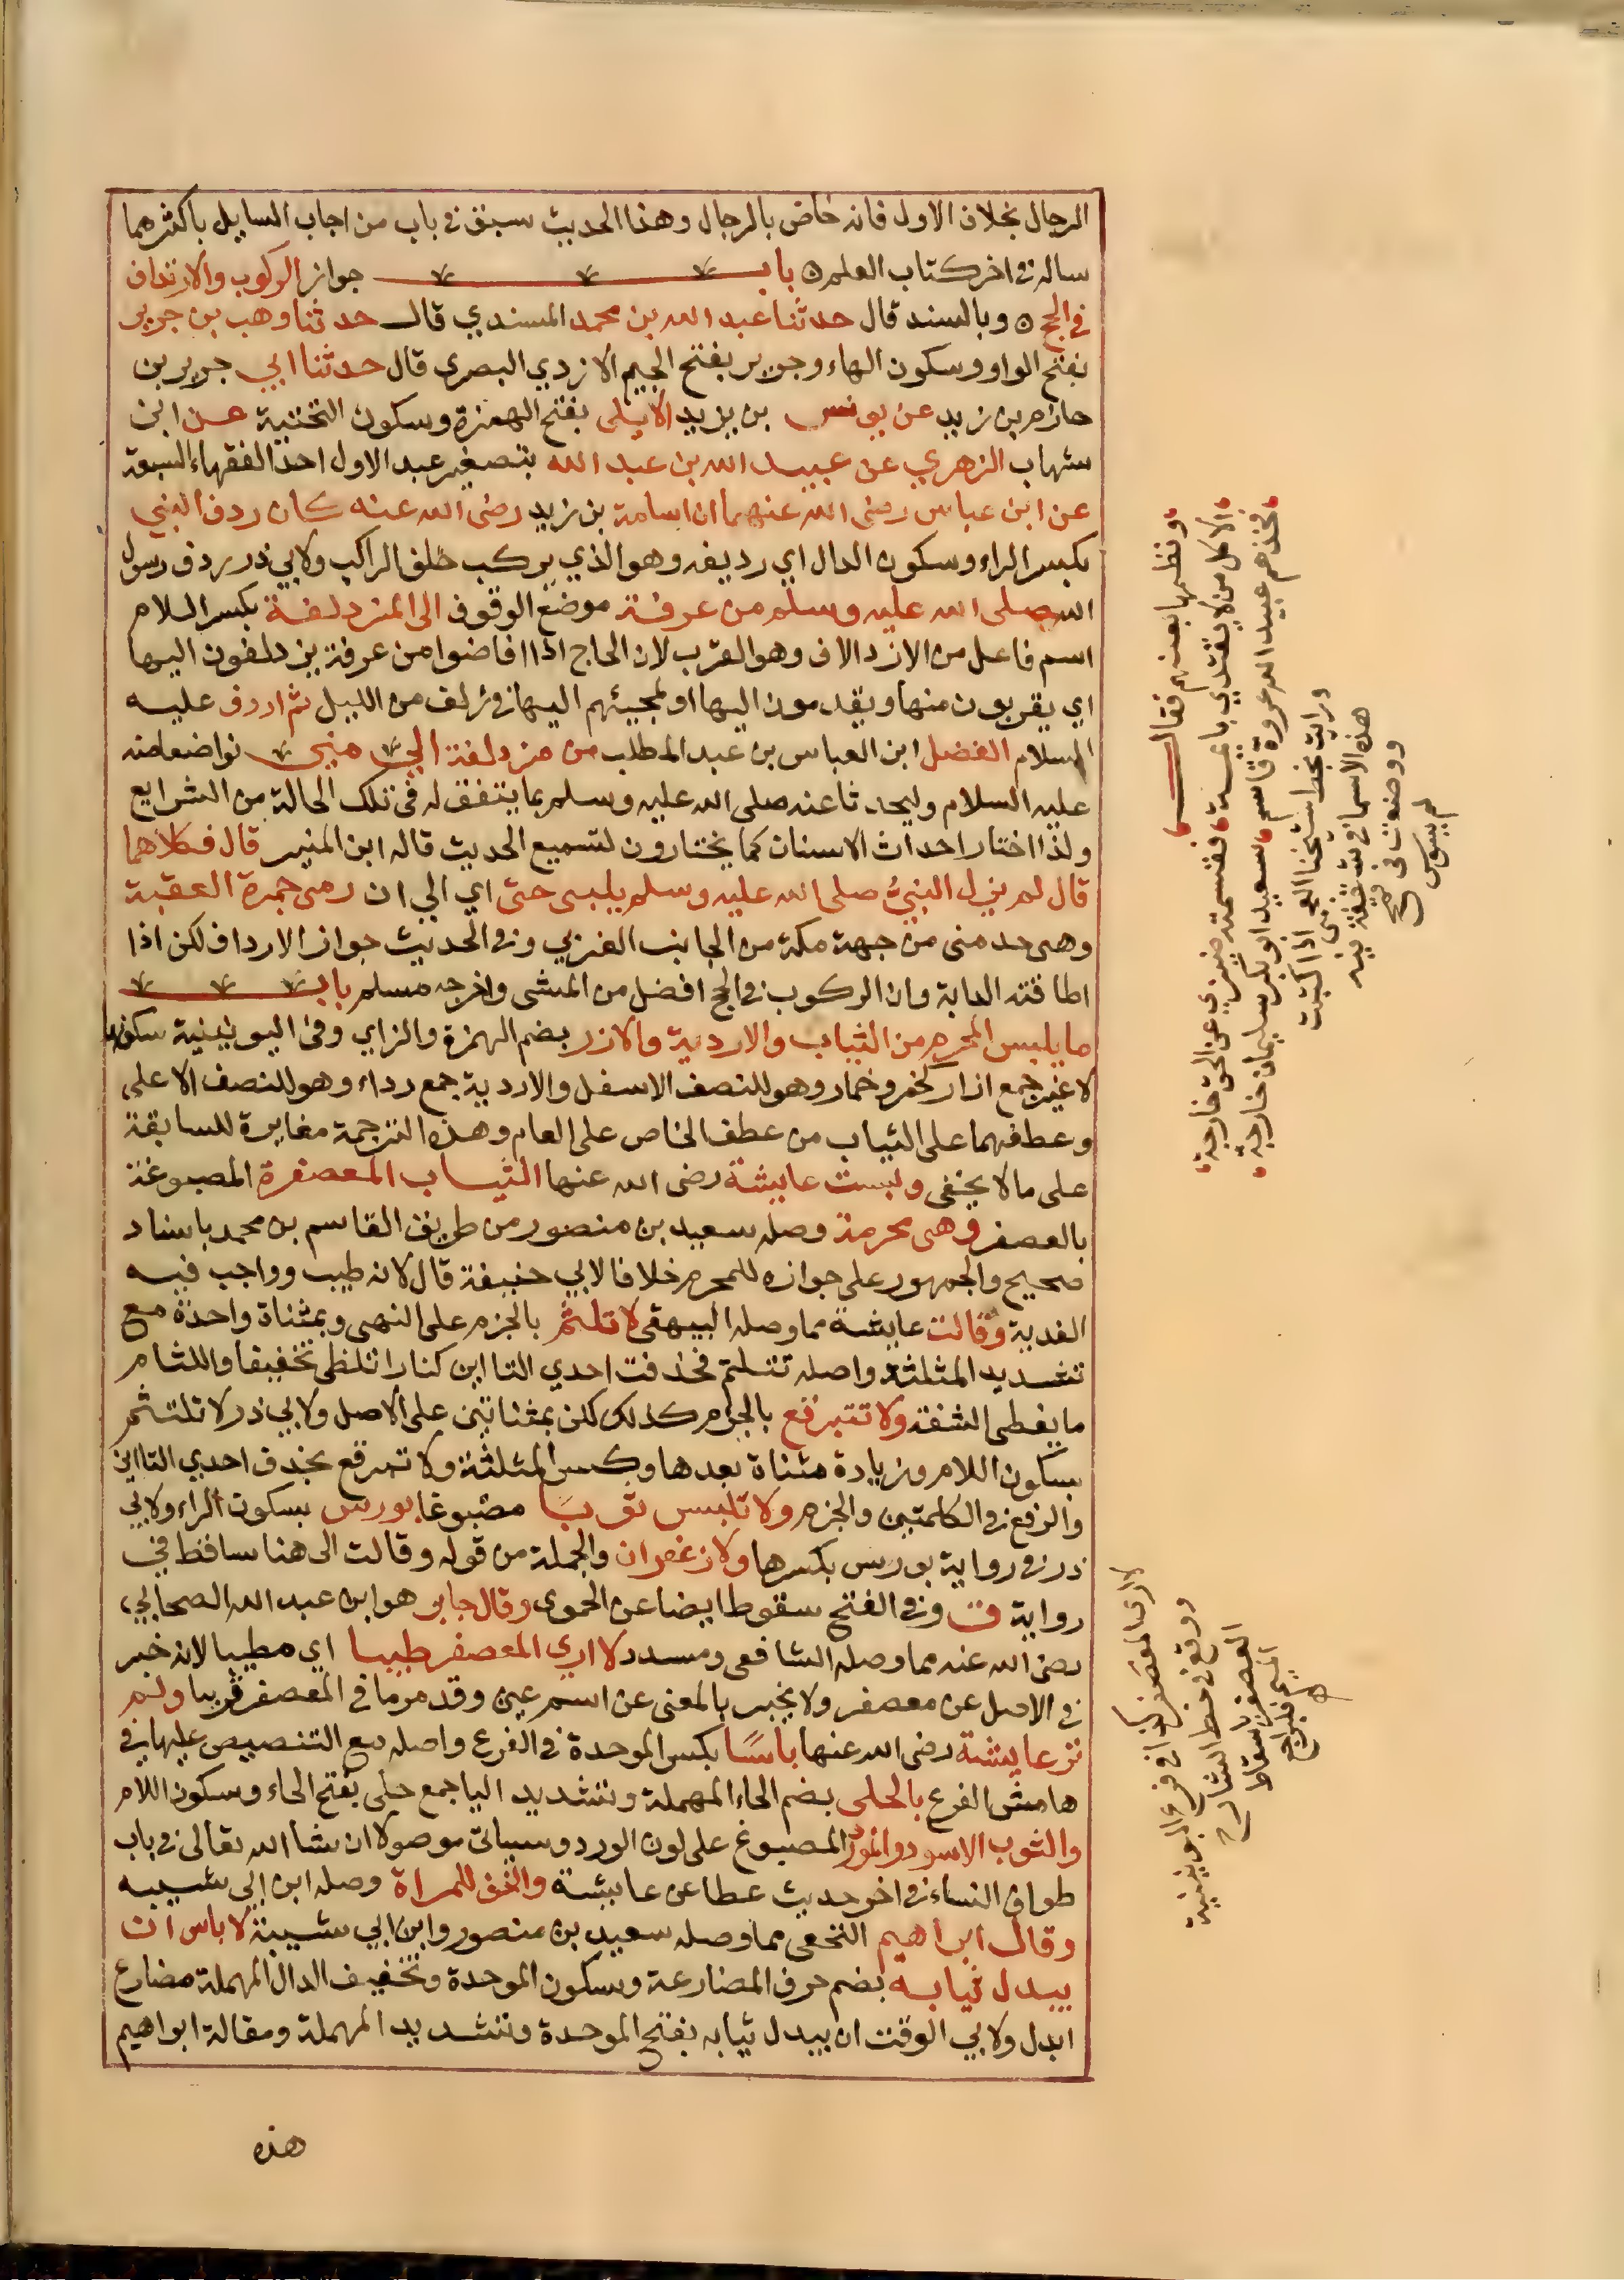 الرجال بخلاف الاول فانه خاص بالرجال وهذا الحديث سبق في باب من اجاب السايل باكثر مما
ساله في اخر كتاب العلم ه باب جواز الركوب والارتداف
في الحج ه وبالسند قال حدثنا عبد الله بن محمد المسندي قال حدثنا وهب بن جرير
بفتح الواو وسكون الهاء وجرير بفتح الجيم الازدي البصري قال حدثنا ابي جرير بن
حازم بن زيد عن يونس بن يزيد الايلي بفتح الهمزة وسكون التحتية عن ابن
شهاب الزهري عن عبيد الله بن عبد الله بتصغير عبد الاول احد الفقهاء السبعة
عن ابن عباس رضي الله عنهما ان اسامة بن زيد رضي الله عنه كان ردف النبي
بكسر الراء وسكون الدال اي رديفه وهو الذي يركب خلف الراكب ولابي ذر ردف رسول
الله صلى الله عليه وسلم من عرفة موضع الوقوف الى المزدلفة بكسر اللام
اسم فاعل من الازدلاف وهو القرب لان الحاج اذا افاضوا من عرفة يزدلفون اليها
اي يقربون منها ويقدمون اليها او لمجيئهم اليها في زلف من الليل ثم اردف عليه
السلام الفضل ابن العباس بن عبد المطلب من مزدلفة الى منى تواضعا منه
عليه السلام وليحدثا عنه صلى الله عليه وسلم بما يتفق له في تلك الحالة من الشرايع
ولذا اختار احداث الاسنان كما يختارون لتسميع الحديث قاله ابن المنير قال فكلاهما
قال لم يزل النبي صلى الله عليه وسلم يلبي حتى اي الى ان رمى جمرة العقبة
وهي حد منى من جهة مكة من الجانب الغربي وفي الحديث جواز الارداف لكن اذا
اطاقته الدابة وان الركوب في الحج افضل من المشى واخرجه مسلم باب
ما يلبس المحرم من الثياب والاردية والازر بضم الهمزة والزاي وفي اليونينية سكونها
لا غير جمع ازار كخمر وخمار وهو للنصف الاسفل والاردية جمع رداء وهو للنصف الاعلى
وعطفهما على الثياب من عطف الخاص على العام وهذه الترجمة مغايرة للسابقة
على ما لا يخفى ولبست عايشة رضي الله عنها الثياب المعصفرة المصبوغة
بالعصفر وهي محرمة وصله سعيد بن منصور من طريق القاسم بن محمد باسناد
صحيح والجمهور على جوازه للمحرم خلافا لابي حنيفة قال لانه طيب وواجب فيه
الفدية وقالت عايشة مما وصله البيهقي لا تلثم بالجزم على النهي وبمثناة واحدة مع
تشديد المثلثة واصله تتلثم فحذفت احدي التااين كنارا تلظى تخفيفا واللثام
ما يغطي الشفة ولا تتبرقع بالجزم كذلك لكن بمثناتين على الاصل ولابي ذر لا تلتثم
بسكون اللام وزيادة مثناة بعدها وكسر المثلثة ولا تبرقع بحذف احدي التااين
والرفع في الكلمتين والجزم ولا تلبس ثوبا مصبوغا بورس بسكون الراء ولابي
ذر في رواية بورس بكسرها ولا زعفران والجملة من قوله وقالت الى هنا ساقط في
رواية ق وفي الفتح سقوطا ايضا عن الحموي وقال جابر هو ابن عبد الله الصحابي
رضي الله عنه مما وصله الشافعي ومسدد لا ارى المعصفر طيبا اي مطيبا لانه خبر
في الاصل عن معصفر ولا يخبر بالمعنى عن اسم عين وقد مر ما في المعصفر قريبا ولم
تر عايشة رضي الله عنها باسًا بكسر الموحدة في الفرع واصله مع التنصيص عليها في
هامش الفرع بالحلي بضم الحاء المهملة وتشديد اليا جمع حلي بفتح الحاء وسكون اللام
والثوب الاسود والمورد المصبوغ على لون الورد وسياتي موصولا ان شا الله تعالى في باب
طواف النساء في اخر حديث عطا عن عايشة والخف للمراة وصله ابن ابي شيبه
وقال ابراهيم النخعي مما وصله سعيد بن منصور وابن ابي شيبة لا باس ان
يبدل ثيابه بضم حرف المضارعة وسكون الموحدة وتخفيف الدال المهملة مضارع
ابدل ولابي الوقت ان يبدل ثيابه بفتح الموحدة وتشديد المهملة ومقالة ابراهيم
هذه
ونظمها بعضهم فقال
الا كل من لا يقتدي بايمة فقسمته ضيزي عن الحق خارجة
فخذهم عبيد الله عروة قاسم سعيد ابو بكر سليمان خارجة
ورايت بخط شيخنا اذا كتبت
هذه الاسما في
ووضعت في قمح
لم يسوس
لا ارى المعصفر طيبا في فرع اليونينية
ووقع في خط الشارح
العصفر باسقاط
الميم فليراجع